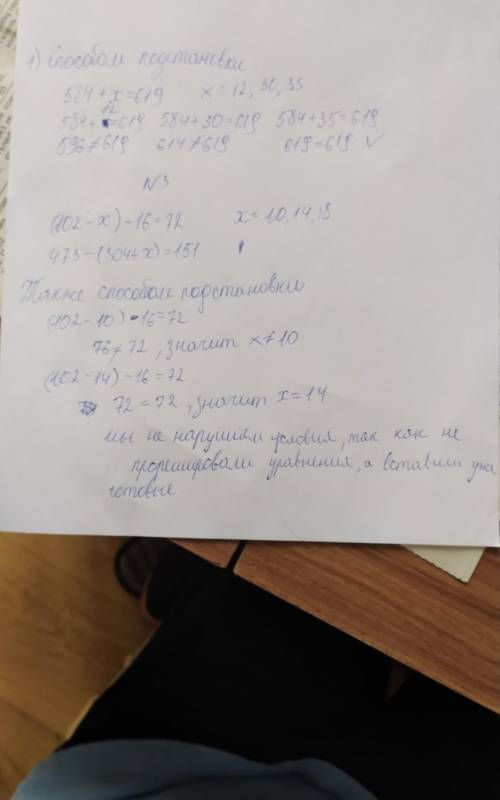 1) Способом подстановки
584 + x = 619 x = 12, 30, 35
584 + 12 = 619 584 + 30 = 619 584 + 35 = 619
596 ≠ 619 614 ≠ 619 619 = 619 ✓
№3
(102 - x) - 16 = 72 x = 10, 14, 18
473 - (304 + x) = 151
Также способом подстановки
(102 - 10) - 16 = 72
76 ≠ 72, значит x ≠ 10
(102 - 14) - 16 = 72
72 = 72, значит x = 14
мы не нарушили условия, так как не
прорешировали уравнения, а вставили уже
готовые